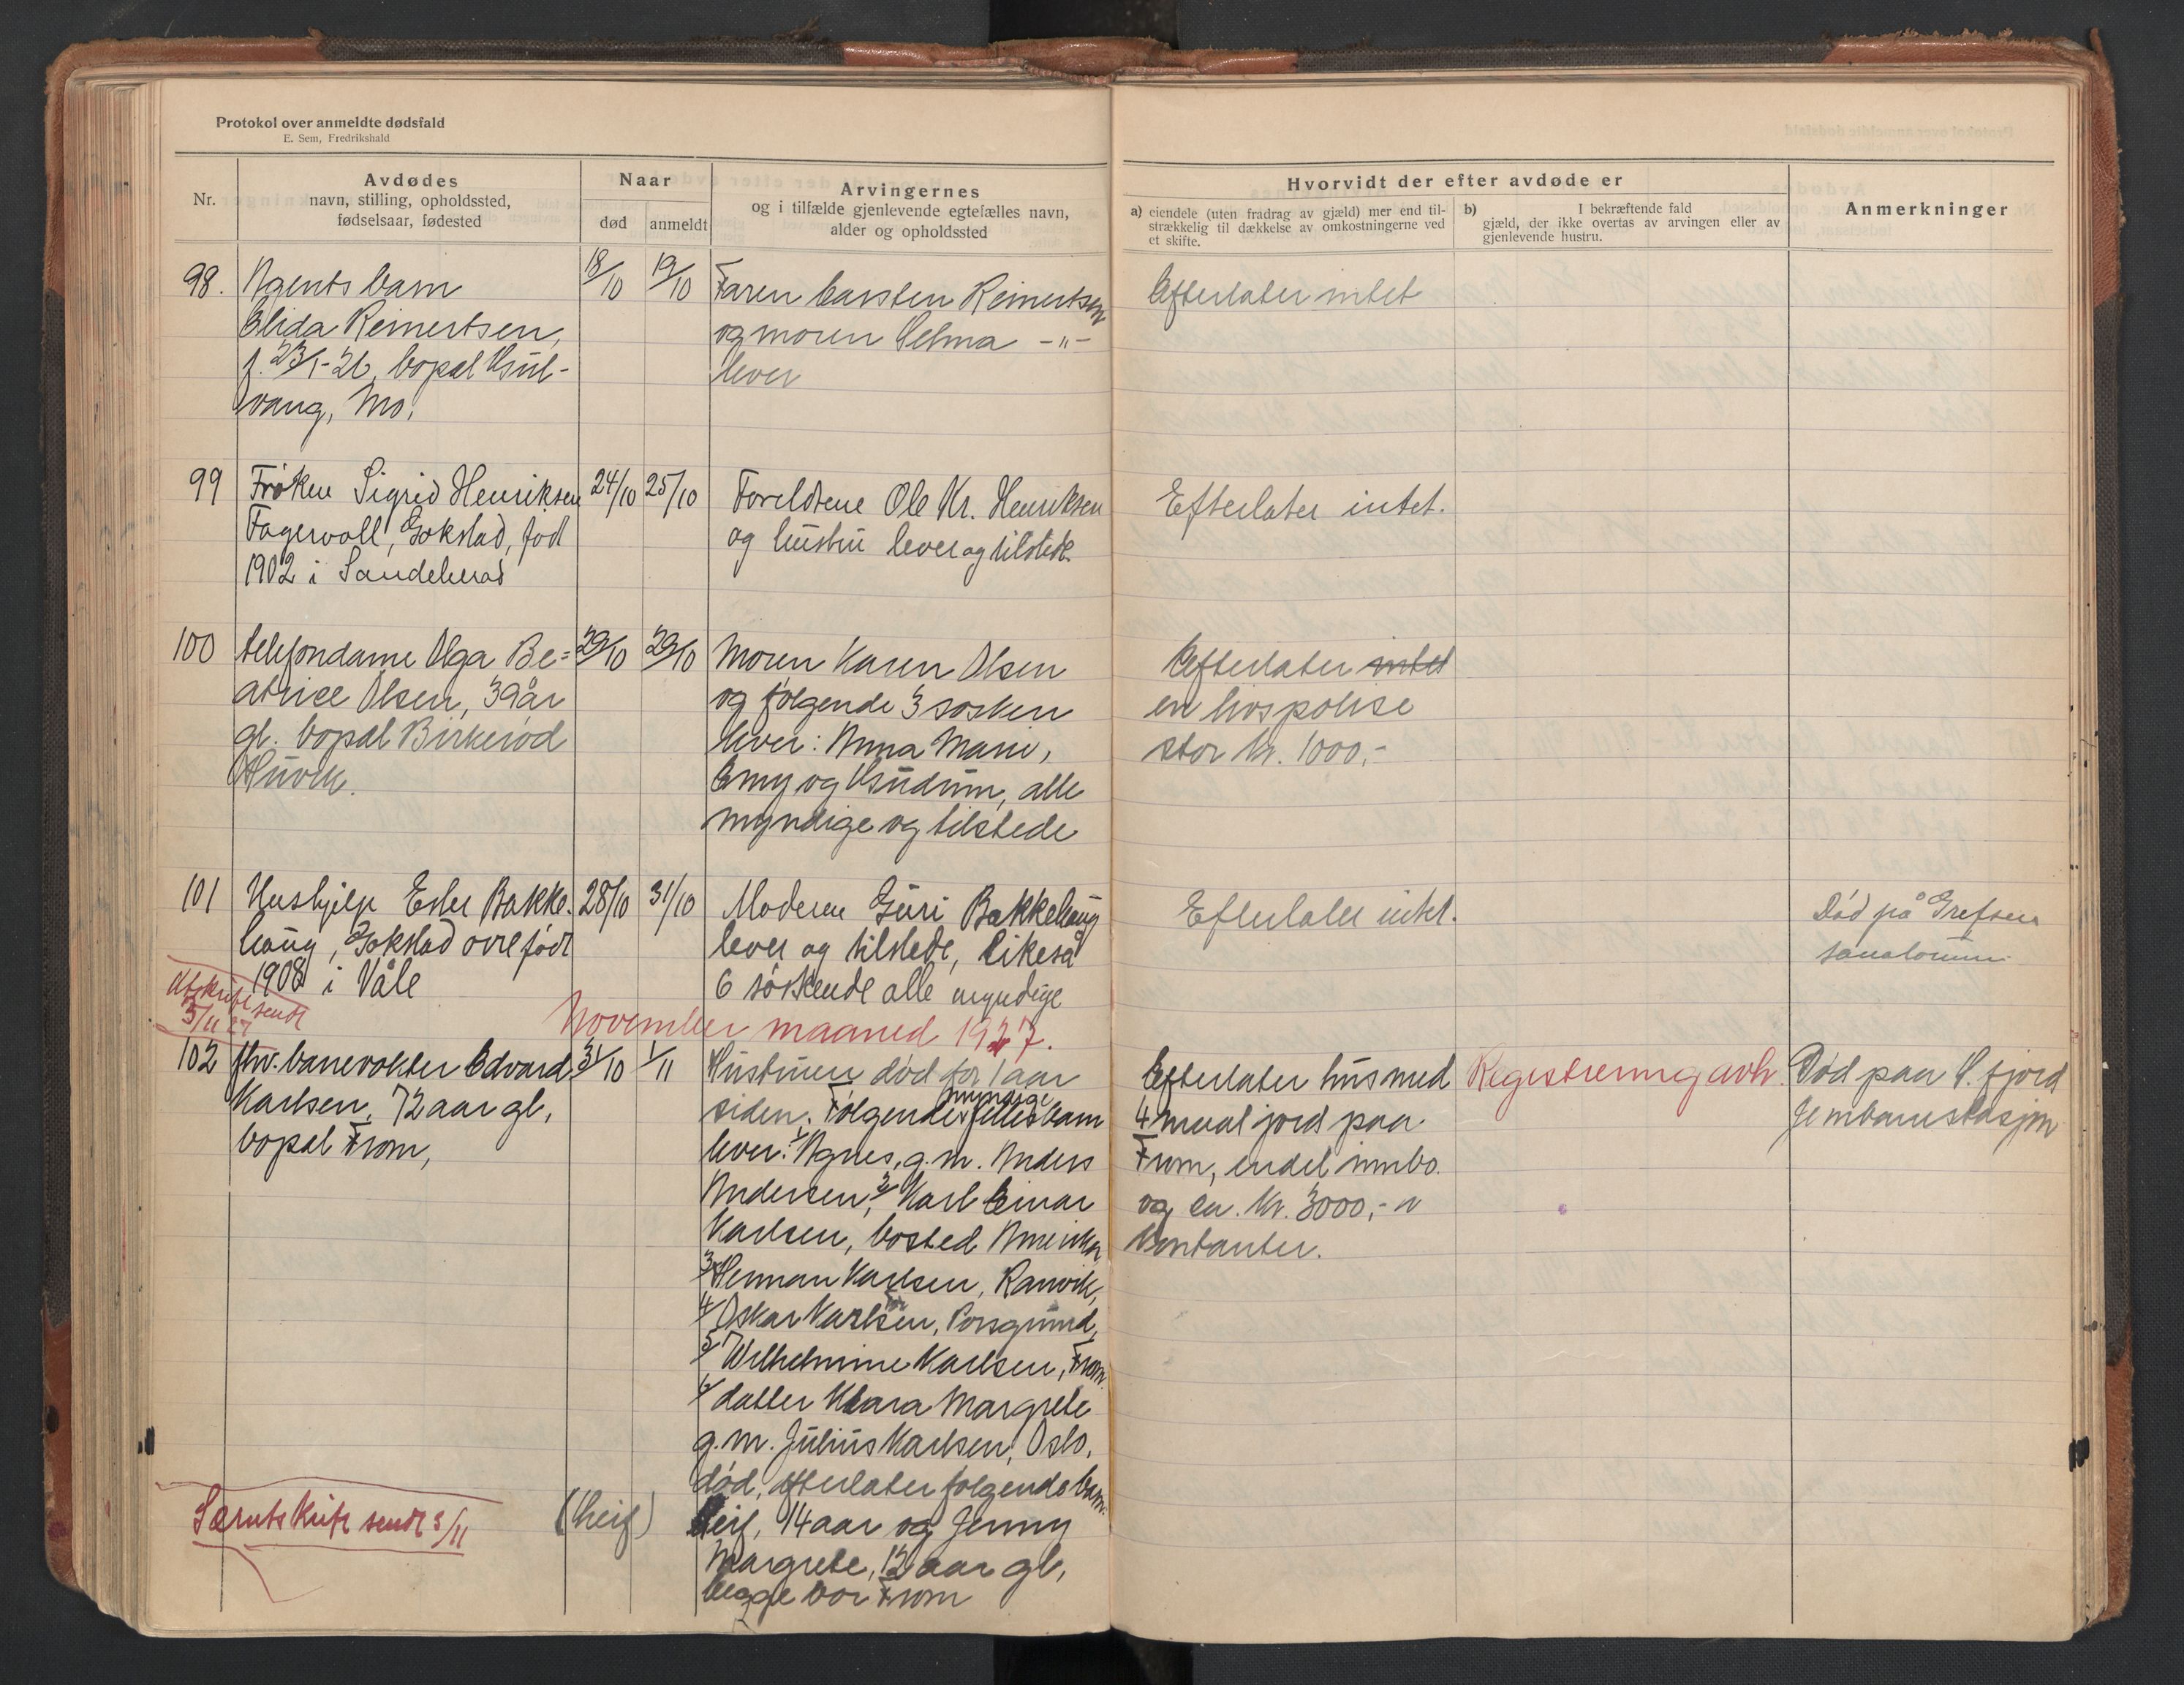 Protokol over anmeldte dødsfald
E. Sem, Fredrikshald
Nr.
Avdødes
navn, stilling, opholdssted,
fødselsaar, fødested
Naar
død
anmeldt
Arvingernes
og i tilfælde gjenlevende egtefælles navn,
alder og opholdssted
Hvorvidt der efter avdøde er
a) eiendele (uten fradrag av gjæld) mer end til-
strækkelig til dækkelse av omkostningerne ved
et skifte.
b) I bekræftende fald
gjæld, der ikke overtas av arvingen eller av
gjenlevende hustru.
Anmerkninger
98. Agents barn
Elida Reinertsen,
f. 23/1-26, bopæl Gul-
vang, Mo.
18/10 19/10
Faren Carsten Reinertsen
og moren Selma -"-
lever
Efterlater intet
99 Frøken Sigrid Henriksen
Fagervoll, Gokstad, fød
1902 i Sandeherad
24/10 25/10
Foreldrene Ole Kr. Henriksen
og hustru lever og tilstede.
Efterlater intet.
100 telefondame Olga Be=
atrice Olsen, 39 år
gl. bopæl Birkerød
29/10 29/10
Moren Karen Olsen
og følgende 3 søsken
lever: Anna Marie,
Emy og Gudrun, alle
myndige og tilstede
Efterlater intet
en livspolise
stor kr. 1000,-
101 Hushjelp Ester Bakke-
haug, Gokstad øvre født
1908 i Våle
28/10 31/10
Moderen Guri Bakkehaug
lever og tilstede, likeså
6 søskende alle myndige
Efterlater intet.
Død på Grefsen
sanatorium.
Utskrift sendt
3/11 27
November maaned 1927.
102 fhv. banevokter Edvard
Karlsen, 72 aar gl,
bopæl From,
31/10 1/11
Hustruen død for 1 aar
siden. Følgende myndige felles barn
lever: 1/ Agnes, g.m. Anders
Andersen, 2/ Karl Einar
Karlsen, bosted Amerika
3/ Herman Karlsen, Ranvik,
4/ Oskar Karlsen, Porsgrund,
5/ Wilhelmine Karlsen, From.
6/ datter Klara Margrete
g.m. Julius Karlsen, Oslo,
død, efterlater følgende barn:
(Leif) Leif, 14 aar og Jenny
Margrete, 12 aar gl,
begge bor From
Efterlater hus med
4 maal jord paa
From, endel innbo
og ca. kr. 3000,- i
kontanter.
Registrering avh.
Død paa S. fjord
Jernbanestasjon
Særutskrift sendt 3/11